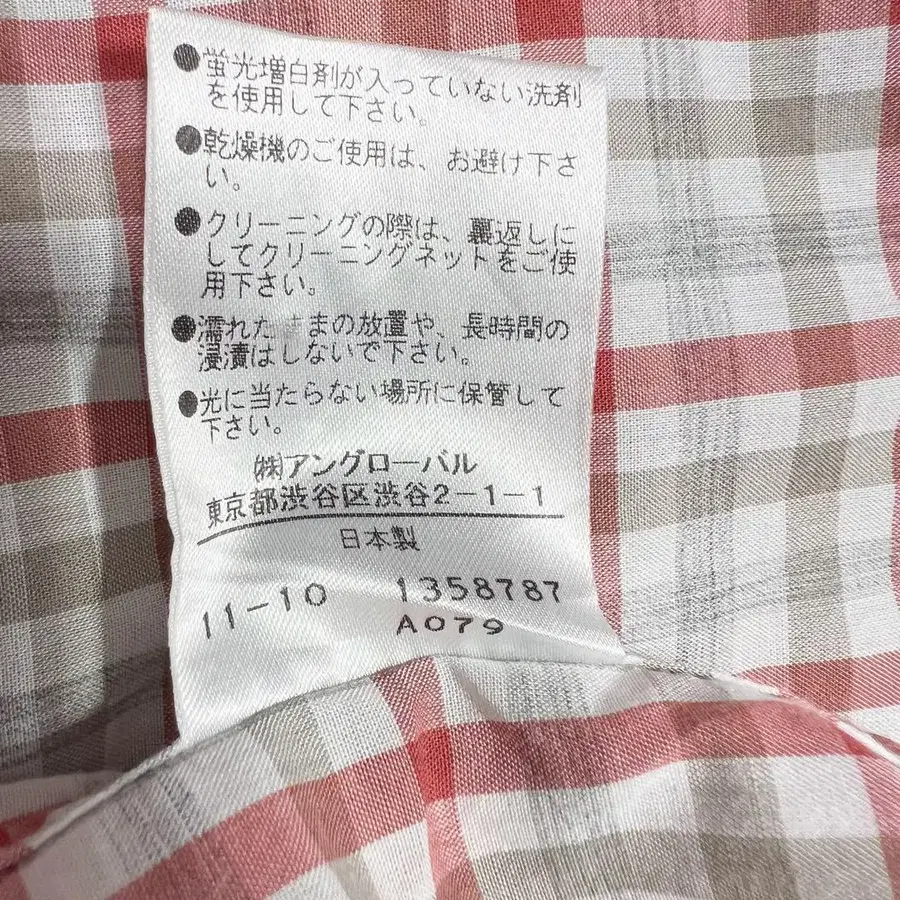 ●蛍光増白剤が入っていない洗剤
を使用して下さい。
●乾燥機のご使用は、お避け下さ
い。
●クリーニングの際は、裏返しに
してクリーニングネットをご使
用下さい。
●濡れたままの放置や、長時間の
浸漬はしないで下さい。
●光に当たらない場所に保管して
下さい。
㈱アングローバル
東京都渋谷区渋谷2-1-1
日本製
11-10 1358787
A079